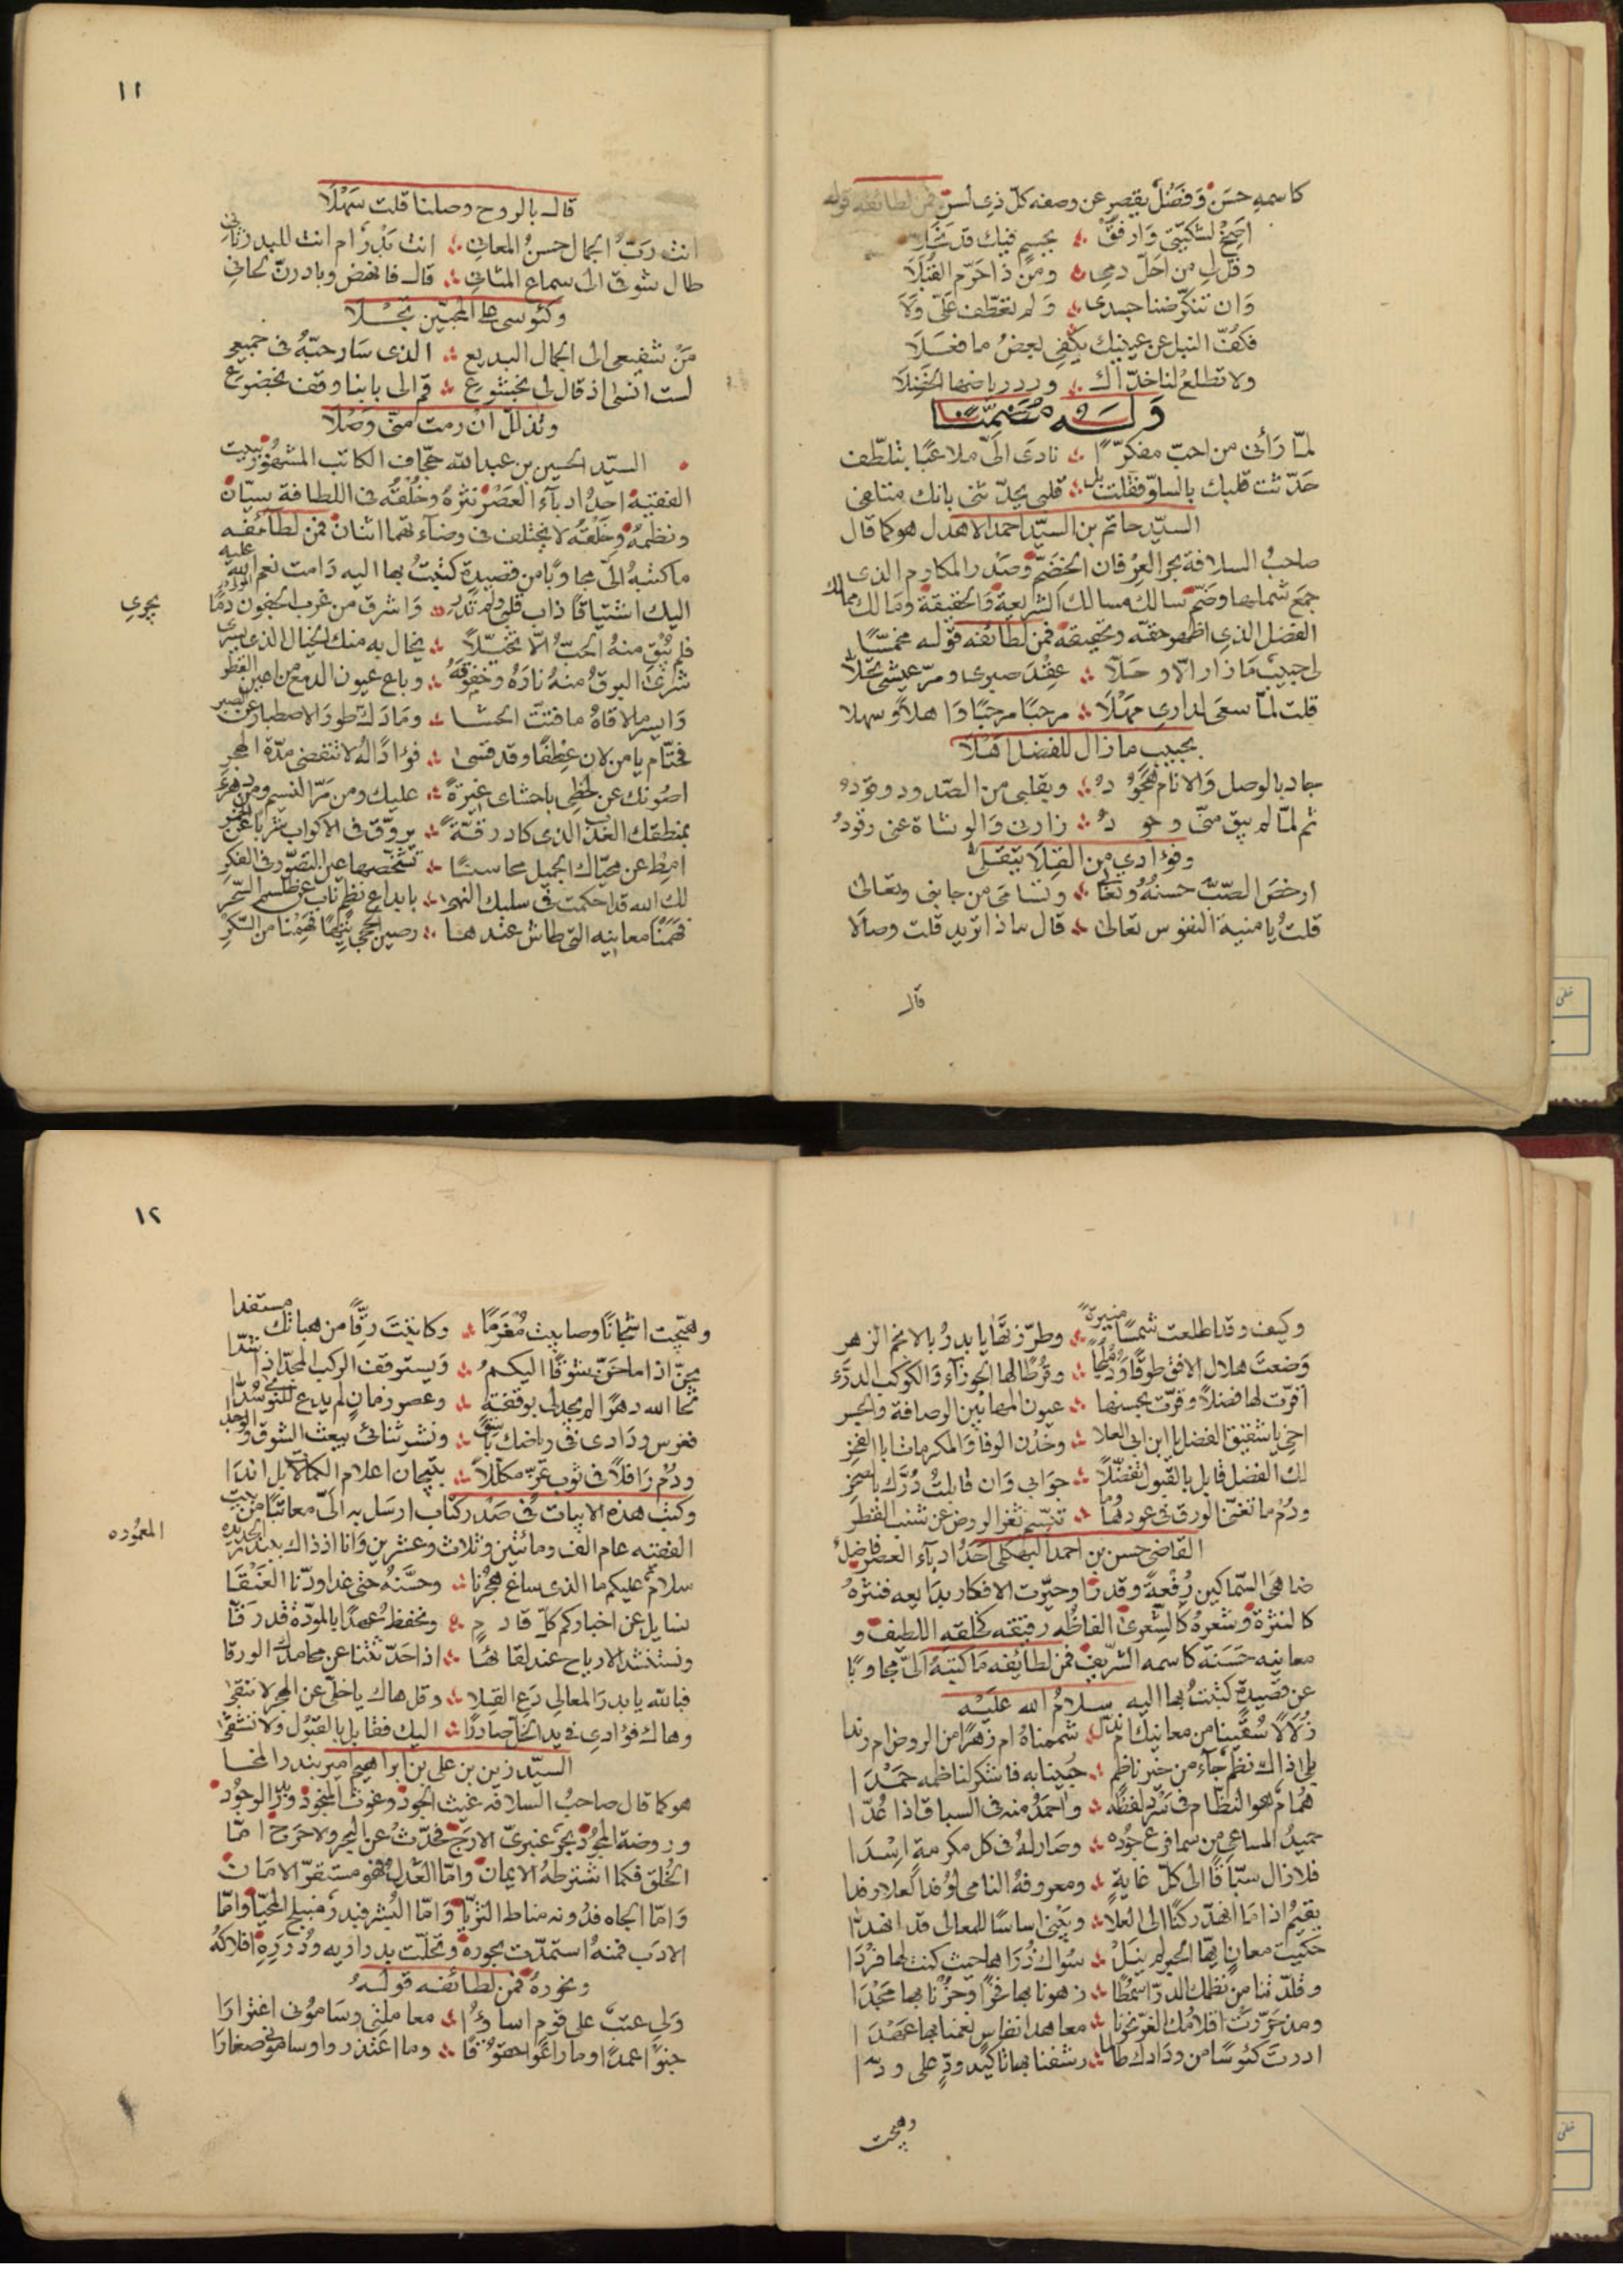 كاسمه حسن وفضل يقصر عن وصفه كل ذي لسن فمن لطائفه قوله
اصخ لشكيتي وارفق ؞ بجسم فيك قد نحلا
وقل لي من احل دمي ؞ ومن ذا حرم القبلا
وان تنكر ضنا جسدي ؞ ولم تعطف علي ولا
فكف النبل عن عينيك يكفي بعض ما فعلا
ولا تطلع لنا خداك ؞ ورد رياضها الخضلا
وله مضمنا
لما رأني من احب مفكرا ؞ نادى الي ملاعبا بتلطف
حدثت قلبك بالسلو فقلت بل ؞ قلبي يحدثني بانك متلفي
السيد حاتم بن السيد احمد الاهدل هو كما قال
صاحب السلافة بحر العرفان الخضم وصدر المكارم الذي
جمع شملها وضم سالك مسالك الشريعة والحقيقة ومالك ممالك
الفضل الذي اظهر حقه وتحقيقه فمن لطائفه قوله مخمسا
لي حبيب ما زار الا وحلا ؞ عقد صبري ومر عيشي تحلا
قلت لما سعى لداري مهلا ؞ مرحبا مرحبا واهلا وسهلا
بحبيب ما زال للفضل اهلا
جاد بالوصل والانام هجود ؞ وبقلبي من الصدود وقود
ثم لما لم يبق مني وجود ؞ زارني والوشاة عني رقود
وفؤادي من القلا يتقلى
ارخص الصب حسنه وتغالى ؞ وتسامى من جانبي وتعالى
قلت يا منية النفوس تعالى ؞ قال ماذا تريد قلت وصالا
قال
١١
قال بالروح وصلنا قلت سهلا
انت رب الجمال حسن المعاني ؞ انت بدر ام انت للبدر ثاني
طال شوقي الى سماع المثاني ؞ قال فانهض وبادرن لحاني
وكئوسي على المحبين تجلا
من شفيعي الى الجمال البديع ؞ الذي سار حبه في جميعي
لست انسى اذ قال لي بخشوع ؞ قم الى بابنا وقف بخضوع
وتذلل ان رمت مني وصلا
السيد الحسين بن عبد الله جحاف الكاتب المشهور ببيت
الفقيه احد ادباء العصر نثره وخلقه في اللطافة سيان
ونظمه وخلقه لا يختلف في وضاءتهما اثنان فمن لطائفه
ما كتبه الي مجاوبا من قصيدة كتبت بها اليه دامت نعم الله عليه
اليك اشتياقا ذاب قلبي ولم تدر ؞ واشرق من غرب الجفون دما
يجري
فلم يبق منه الحب الا تخيلا ؞ يخال به منك الخيال الذي يسري
شرى البرق منه ناره وخفوقه ؞ وباع عيون الدمع من اعين القطر
وايسر ملاقاه ما فتت الحشا ؞ وما دك طور الاصطبار عن الصبر
فحتام يا من لان عطفا وقد قسى ؞ فؤادا له لا تنقضي مدة الهجر
اصونك عن لحظي باحشاي غيرة ؞ عليك ومن مر النسيم ومن
بمنطقك العذب الذي كاد رقة ؞ يروق في الاكواب شربا عن
امط عن محياك الجميل محاسنا ؞ تشخصها عين التصور في الفكر
لك الله قد احكمت في سلبك النهى ؞ بابداع نظم ناب عن طلسم السحر
فهمنا معانيه التي طاش عندها ؞ رصين الحجى تيها فهمنا من السكر
وكيف وقد اطلعت شمسا منيرة ؞ وطرزتها يا بدر بالانجم الزهر
وضعت هلال الافق طوقا ودملجا ؞ وقرطا لها الجوزآء والكوكب الدري
اقرت لها فضلا وقرت بحسنها ؞ عيون المها بين الرصافة والجسر
اخي يا شقيق الفضل يا ابن ابي العلا ؞ وخدن الوفا والمكرمات ابا الفخر
لك الفضل قابل بالقبول تفضلا ؞ جوابي وان قابلت درك بالصخر
ودم ما تغنى الورق في عودها وما ؞ تبسم ثغر الروض عن شنب القطر
القاضي حسن بن احمد البهكلي احد ادبآء العصر فاضل
ضاهى السماكين رفعة وقدرا وحيرت الافكار بدايعه فنثره
كالنثرة وشعره كالشعرى الفاظه رقيقة كخلقه اللطيف و
معانيه حسنة كاسمه الشريف فمن لطايفه ما كتبه الي مجاوبا
عن قصيدة كتبت بها اليه سلام الله عليه
زلالا سقينا من معانيك ام ندا ؞ شممناه ام زهرا من الروض ام رندا
بلى ذاك نظم جآء من خير ناظم ؞ حبينا به فاشكر لناظمه حمدا
همام هو النظام في سرد لفظه ؞ واحمد منه في السباق اذا عدا
حميد المساعي من سما فرع جوده ؞ وصار له في كل مكرمة اسدا
فلا زال سباقا الى كل غاية ؞ ومعروفه النامي لوفد العلا رفدا
يقيم اذا ما انهد ركنا الى العلا ؞ ويبني اساسا للمعالي قد انهدا
حكيت معان ايها الحبر لم ينل ؞ سواك ذراها حيث كنت لها فردا
وقلدتنا من نظمك الدر اسمطا ؞ زهونا بها فخرا وحزنا بها مجدا
ومذ حررت اقلامك الغر نحونا ؞ معاهد انفاس نعمنا بها عهدا
ادرت كئوسا من ودادك طالما ؞ رشفنا بها تاكيد ود على ودا
وهيجت
١٢
وهيجت اشجانا وصابيت مغرما ؞ وكاتبت رقا من هباتك مستفدا
يحن اذا ما حن شوقا اليكم ؞ ويستوقف الركب المجد اذا شدا
لحا الله دهرا لم يجد لي بوقفة ؞ وعصر زمان لم يدع للنوى سدا
فغرس ودادي في رياضك باسق ؞ ونشر ثنائي يبعث الشوق والوجدا
ودم رافلا في ثوب عز مكللا ؞ بتيجان اعلام الكمال بل اندا
وكتب هذه الابيات في صدر كتاب ارسل به الي معاتبا من بيت
الفقيه عام الف ومائتين وثلاث وعشرين وانا اذ ذاك ببندر الحديده
المعموره
سلام عليكم ما الذي ساغ هجرنا ؞ وحسنه حتى غدا ودنا العنقا
نسايل عن اخباركم كل قادم ؞ ونحفظ عهدا بالمودة قد رقا
ونستنشد الارياح عند لقائها ؞ اذا حدثتنا عن محامدك الورقا
فبالله يا بدر المعالي دع القلا ؞ وقل هاك يا خلي عن الهجر لا تنقى
وهاك فؤادي في يد الخل صادرا ؞ اليك فقابل بالقبول ولا تشقى
السيد زين بن علي بن ابراهيم امير بندر المخا
هو كما قال صاحب السلافه غيث الجود وغوث المنجود وبدر الوجود
وروضة المجود بحر عنبري الارج فحدث عن البحر ولا حرج اما
الخلق فكما اشترطه الايمان واما العدل فهو مستقر الامان
واما الجاه فدونه مناط الثريا واما البشر فبدر منبلج المحيا واما
الادب فمنه استمدت بحوره وتحلت بدراريه ودرره افلاكه
ونحوره فمن لطائفه قوله
ولي عتب على قوم اساؤا ؞ معاملتي وساموني اغترارا
جنوا عمدا وما راعوا حقوقا ؞ وما اعتذروا وساموني صغارا